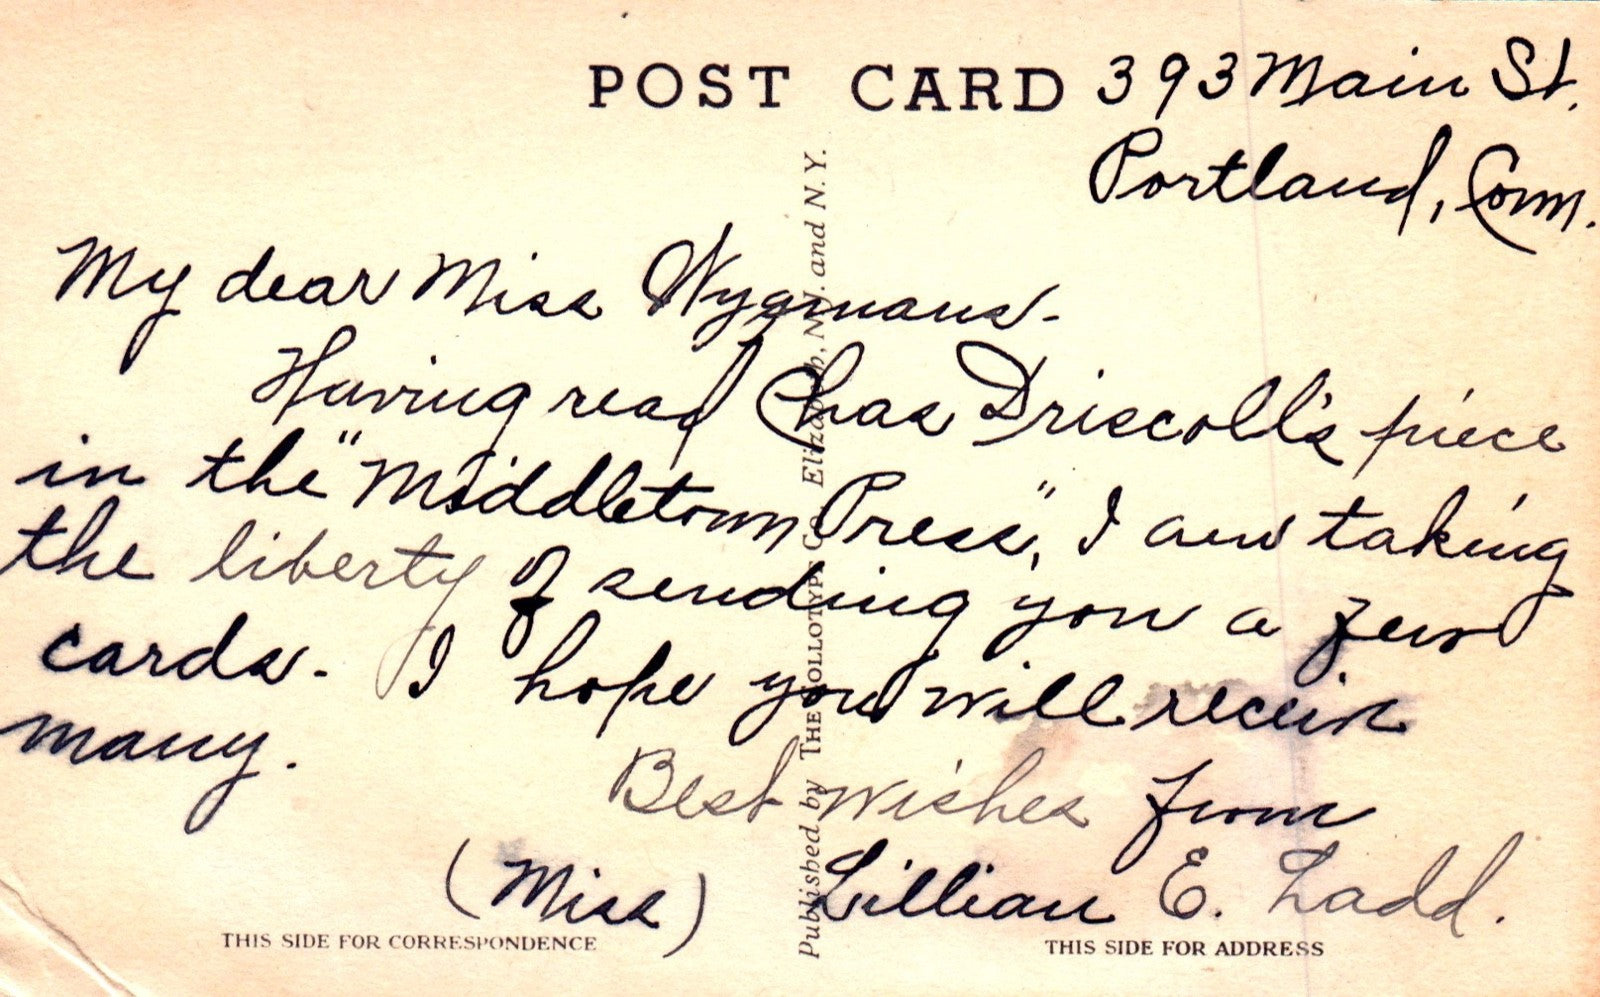 POST CARD
393 Main St.
Portland, Conn.
My dear Miss Wygmans.
Having read Chas Driscoll's piece
in the "Middletown Press", I am taking
the liberty of sending you a few
cards. I hope you will receive
many.
Best Wishes from
(Miss) Lillian E. Ladd.
Published by THE COLLOTYPE CO. Elizabeth, N. J. and N. Y.
THIS SIDE FOR CORRESPONDENCE
THIS SIDE FOR ADDRESS